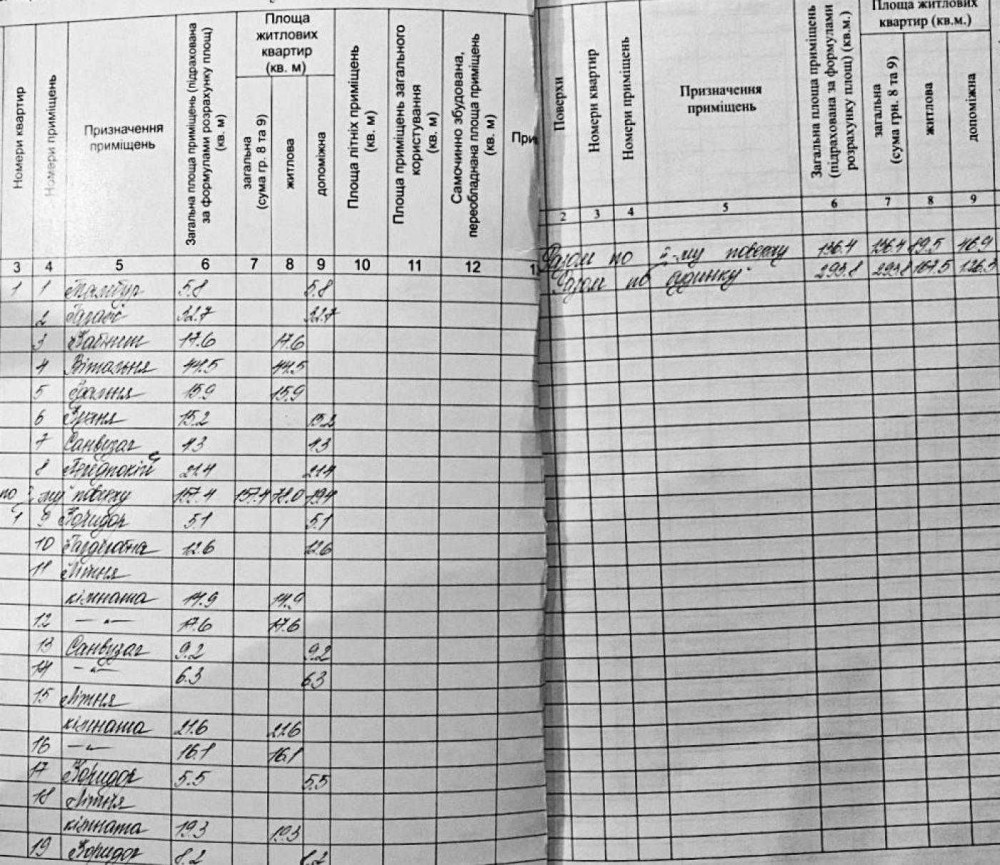 Номери квартир
Номери приміщень
Призначення приміщень
Загальна площа приміщень (підрахована за формулами розрахунку площ) (кв. м)
Площа житлових квартир (кв. м)
загальна (сума гр. 8 та 9)
житлова
допоміжна
Площа літніх приміщень (кв. м)
Площа приміщень загального користування (кв. м)
Самочинно збудована, переобладнана площа приміщень (кв. м)
При
3 4 5 6 7 8 9 10 11 12 1
1 1 Тамбур 5.8 5.8
2 Гараж 32.7 32.7
3 Кабінет 17.6 17.6
4 Вітальня 44.5 44.5
5 Їдальня 15.9 15.9
6 Кухня 15.2 15.2
7 Санвузол 4.3 4.3
8 Передпокій 21.4 21.4
по І-му поверху 157.4 157.4 78.0 79.4
1 9 Коридор 5.1 5.1
10 Гардеробна 12.6 12.6
11 Літня
кімната 14.9 14.9
12 — " — 17.6 17.6
13 Санвузол 9.2 9.2
14 — " — 6.3 6.3
15 Літня
кімната 21.6 21.6
16 — " — 16.1 16.1
17 Коридор 5.5 5.5
18 Літня
кімната 19.3 19.3
19 Коридор 8.2 8.2
Поверхи
Номери квартир
Номери приміщень
Призначення приміщень
Загальна площа приміщень (підрахована за формулами розрахунку площ) (кв.м)
Площа житлових квартир (кв.м.)
загальна (сума грн. 8 та 9)
житлова
допоміжна
2 3 4 5 6 7 8 9
Разом по ІІ-му поверху 136.4 136.4 89.5 46.9
Разом по будинку 293.8 293.8 167.5 126.3